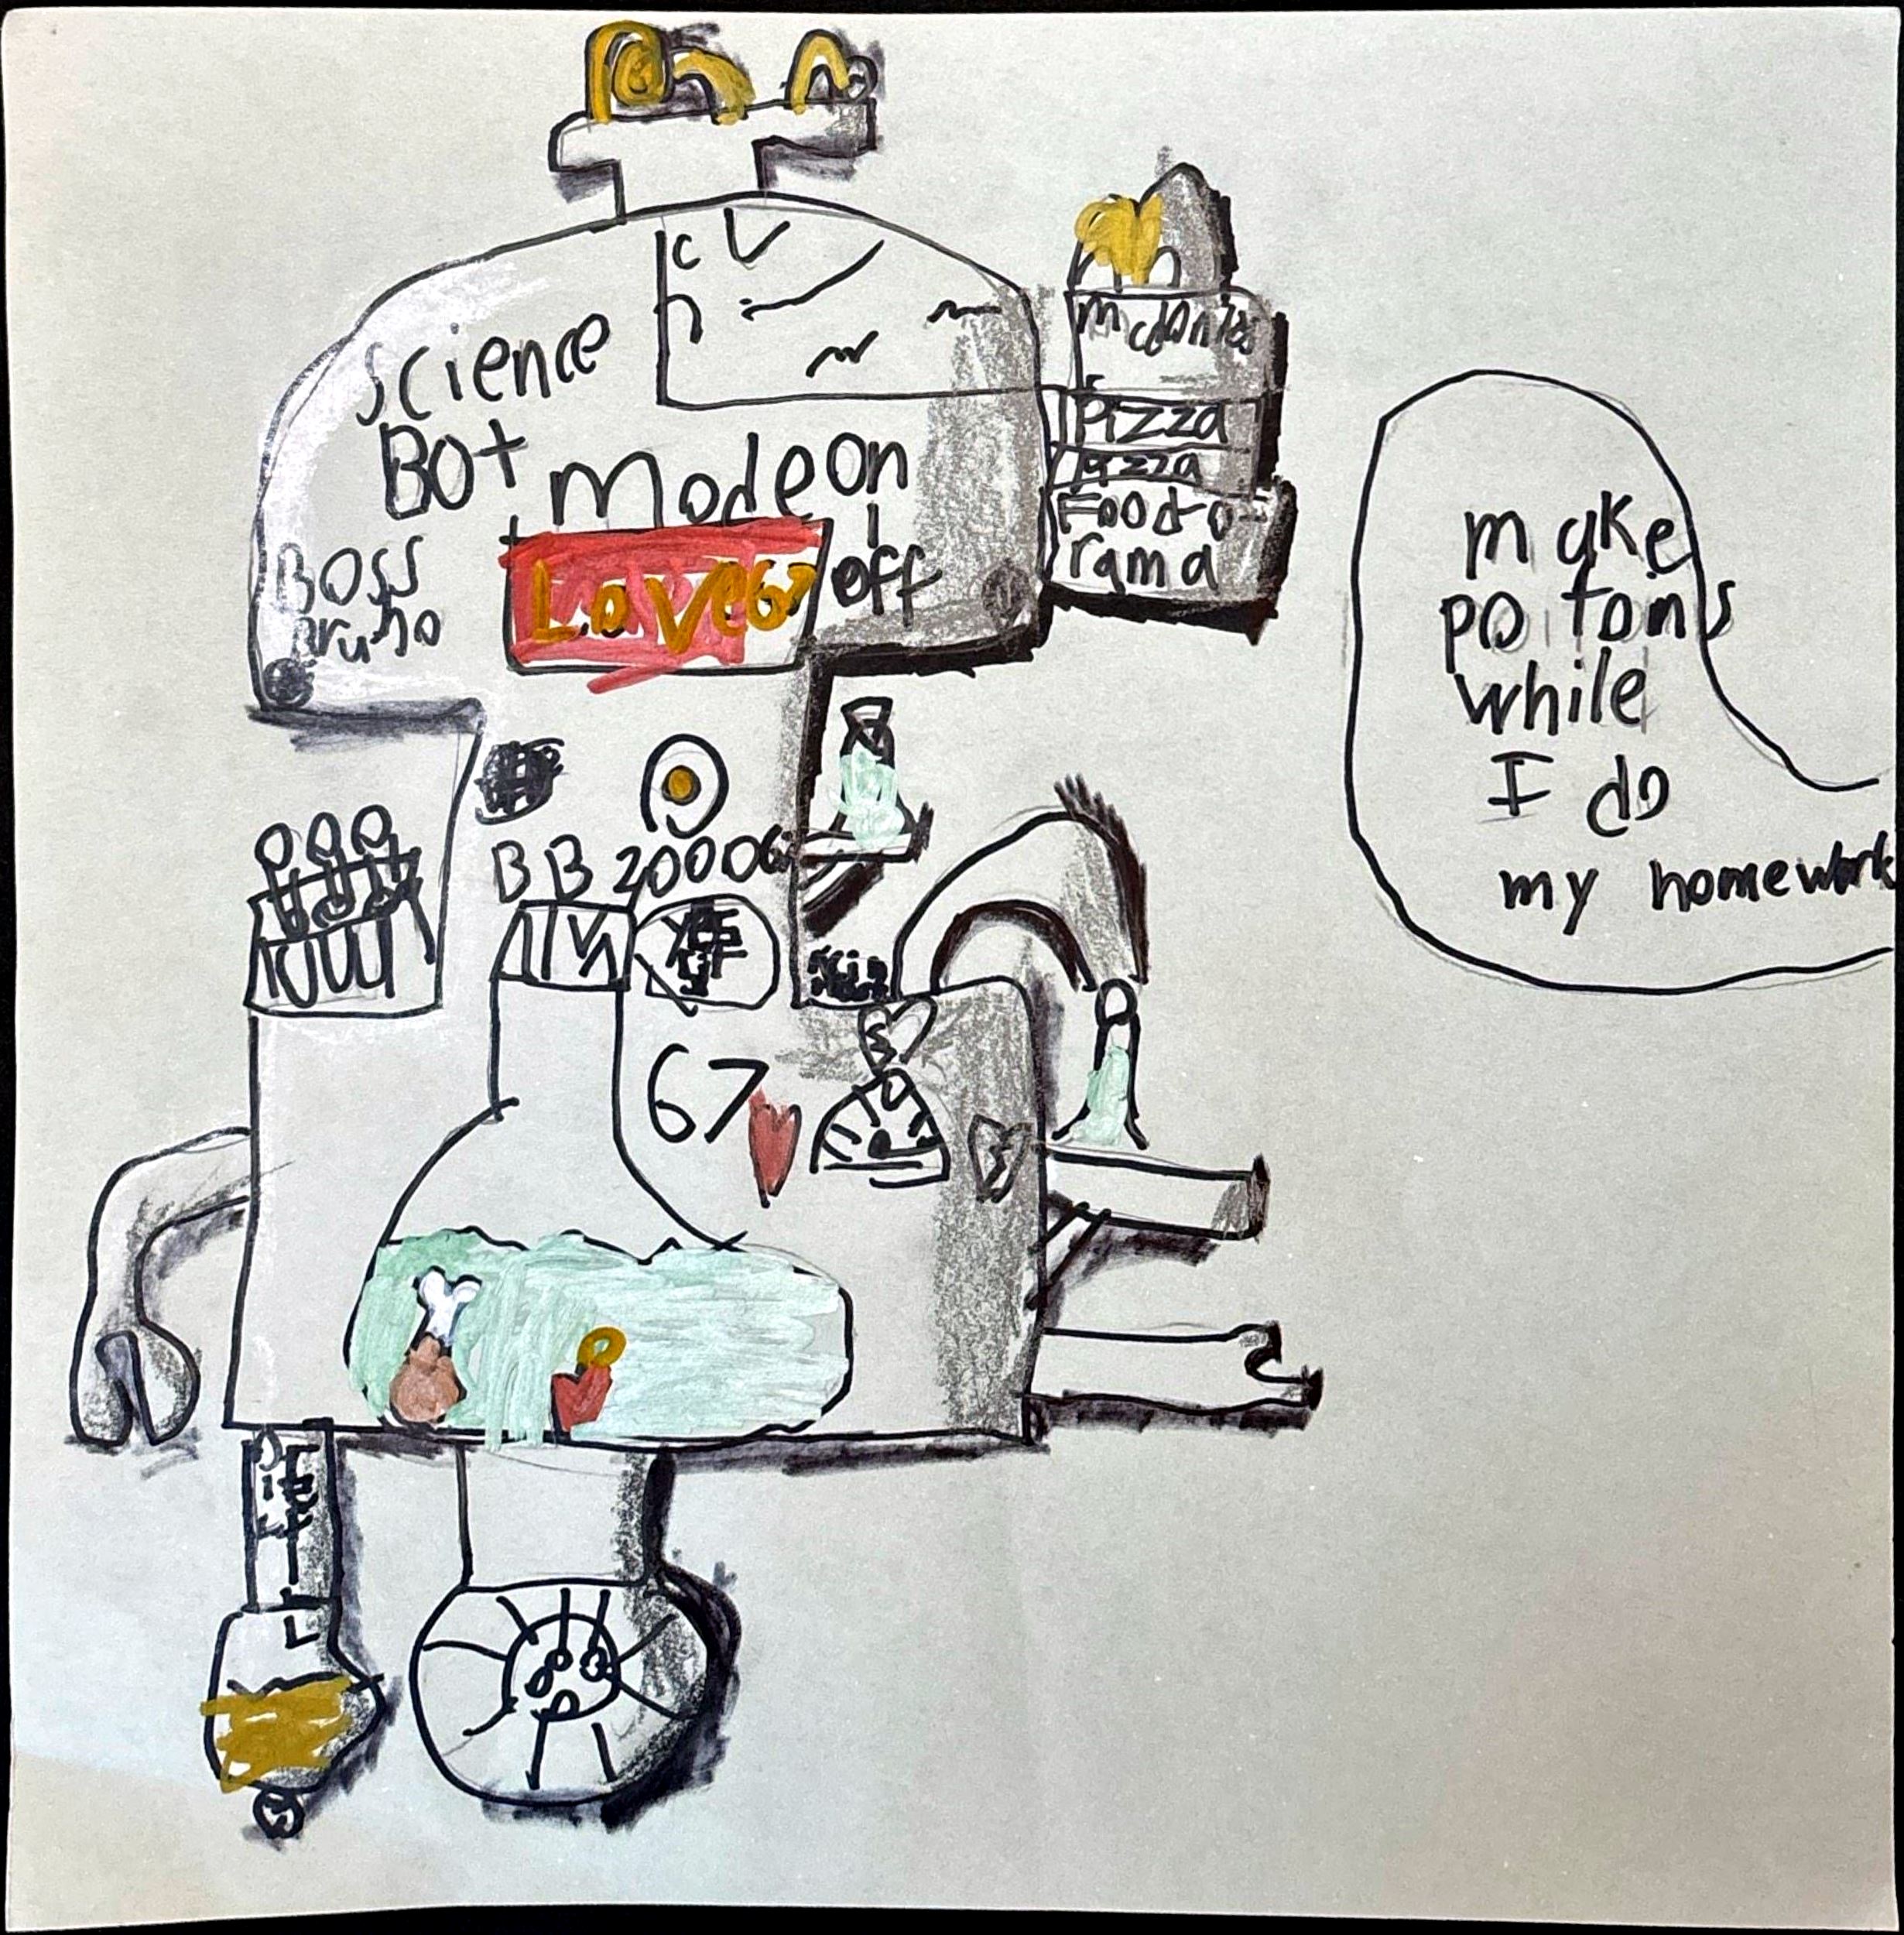 science
Bot
Mode on
off
Boss
Bruno
Love67
mcdonlds
Pizza
Pizza
Food-o-
rama
make
potions
while
I do
my homework
BB 2000
67